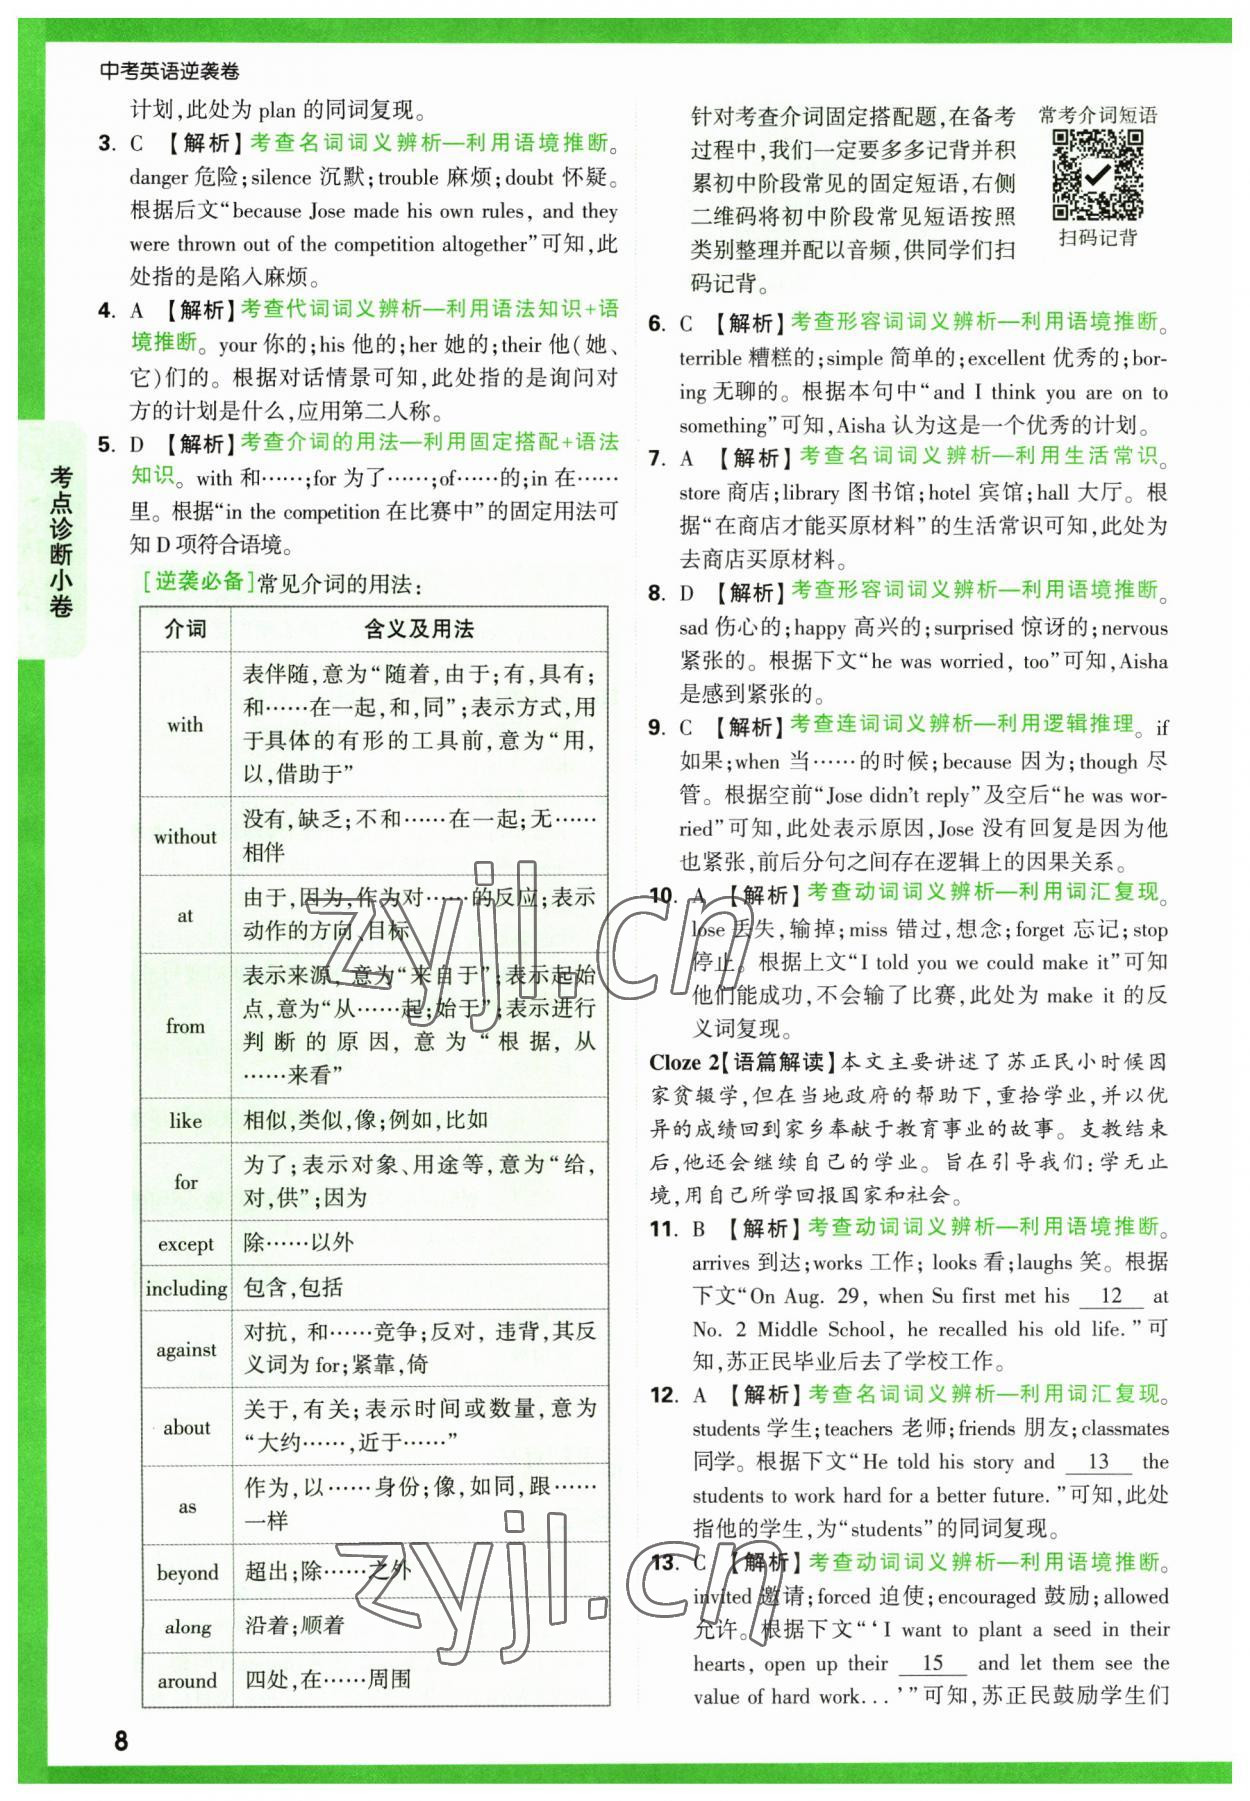 中考英语逆袭卷
计划,此处为 plan 的同词复现。
3. C 【解析】考查名词词义辨析—利用语境推断。
danger 危险;silence 沉默;trouble 麻烦;doubt 怀疑。
根据后文“because Jose made his own rules, and they
were thrown out of the competition altogether”可知,此
处指的是陷入麻烦。
4. A 【解析】考查代词词义辨析—利用语法知识+语
境推断。your 你的;his 他的;her 她的;their 他(她、
它)们的。根据对话情景可知,此处指的是询问对
方的计划是什么,应用第二人称。
5. D 【解析】考查介词的用法—利用固定搭配+语法
知识。with 和……;for 为了……;of……的;in 在……
里。根据“in the competition 在比赛中”的固定用法可
知 D 项符合语境。
[逆袭必备]常见介词的用法:
介词 含义及用法
with 表伴随,意为“随着,由于;有,具有;
和……在一起,和,同”;表示方式,用
于具体的有形的工具前,意为“用,
以,借助于”
without 没有,缺乏;不和……在一起;无……
相伴
at 由于,因为,作为对……的反应;表示
动作的方向、目标
from 表示来源,意为“来自于”;表示起始
点,意为“从……起;始于”;表示进行
判断的原因,意为“根据,从
……来看”
like 相似,类似,像;例如,比如
for 为了;表示对象、用途等,意为“给,
对,供”;因为
except 除……以外
including 包含,包括
against 对抗,和……竞争;反对,违背,其反
义词为 for;紧靠,倚
about 关于,有关;表示时间或数量,意为
“大约……,近于……”
as 作为,以……身份;像,如同,跟……
一样
beyond 超出;除……之外
along 沿着;顺着
around 四处,在……周围
8
考点诊断小卷
针对考查介词固定搭配题,在备考
过程中,我们一定要多多记背并积
累初中阶段常见的固定短语,右侧
二维码将初中阶段常见短语按照
类别整理并配以音频,供同学们扫
码记背。
常考介词短语
扫码记背
6. C 【解析】考查形容词词义辨析—利用语境推断。
terrible 糟糕的;simple 简单的;excellent 优秀的;bor-
ing 无聊的。根据本句中“and I think you are on to
something”可知,Aisha 认为这是一个优秀的计划。
7. A 【解析】考查名词词义辨析—利用生活常识。
store 商店;library 图书馆;hotel 宾馆;hall 大厅。根
据“在商店才能买原材料”的生活常识可知,此处为
去商店买原材料。
8. D 【解析】考查形容词词义辨析—利用语境推断。
sad 伤心的;happy 高兴的;surprised 惊讶的;nervous
紧张的。根据下文“he was worried, too”可知,Aisha
是感到紧张的。
9. C 【解析】考查连词词义辨析—利用逻辑推理。if
如果;when 当……的时候;because 因为;though 尽
管。根据空前“Jose didn't reply”及空后“he was wor-
ried”可知,此处表示原因,Jose 没有回复是因为他
也紧张,前后分句之间存在逻辑上的因果关系。
10. A 【解析】考查动词词义辨析—利用词汇复现。
lose 丢失,输掉;miss 错过,想念;forget 忘记;stop
停止。根据上文“I told you we could make it”可知
他们能成功,不会输了比赛,此处为 make it 的反
义词复现。
Cloze 2【语篇解读】本文主要讲述了苏正民小时候因
家贫辍学,但在当地政府的帮助下,重拾学业,并以优
异的成绩回到家乡奉献于教育事业的故事。支教结束
后,他还会继续自己的学业。旨在引导我们:学无止
境,用自己所学回报国家和社会。
11. B 【解析】考查动词词义辨析—利用语境推断。
arrives 到达;works 工作; looks 看;laughs 笑。根据
下文“On Aug. 29, when Su first met his 12 at
No. 2 Middle School, he recalled his old life.”可
知,苏正民毕业后去了学校工作。
12. A 【解析】考查名词词义辨析—利用词汇复现。
students 学生;teachers 老师;friends 朋友;classmates
同学。根据下文“He told his story and 13 the
students to work hard for a better future.”可知,此处
指他的学生,为“students”的同词复现。
13. C 【解析】考查动词词义辨析—利用语境推断。
invited 邀请;forced 迫使;encouraged 鼓励;allowed
允许。根据下文“‘I want to plant a seed in their
hearts, open up their 15 and let them see the
value of hard work...’”可知,苏正民鼓励学生们
zyjl.cn
zyjl.cn